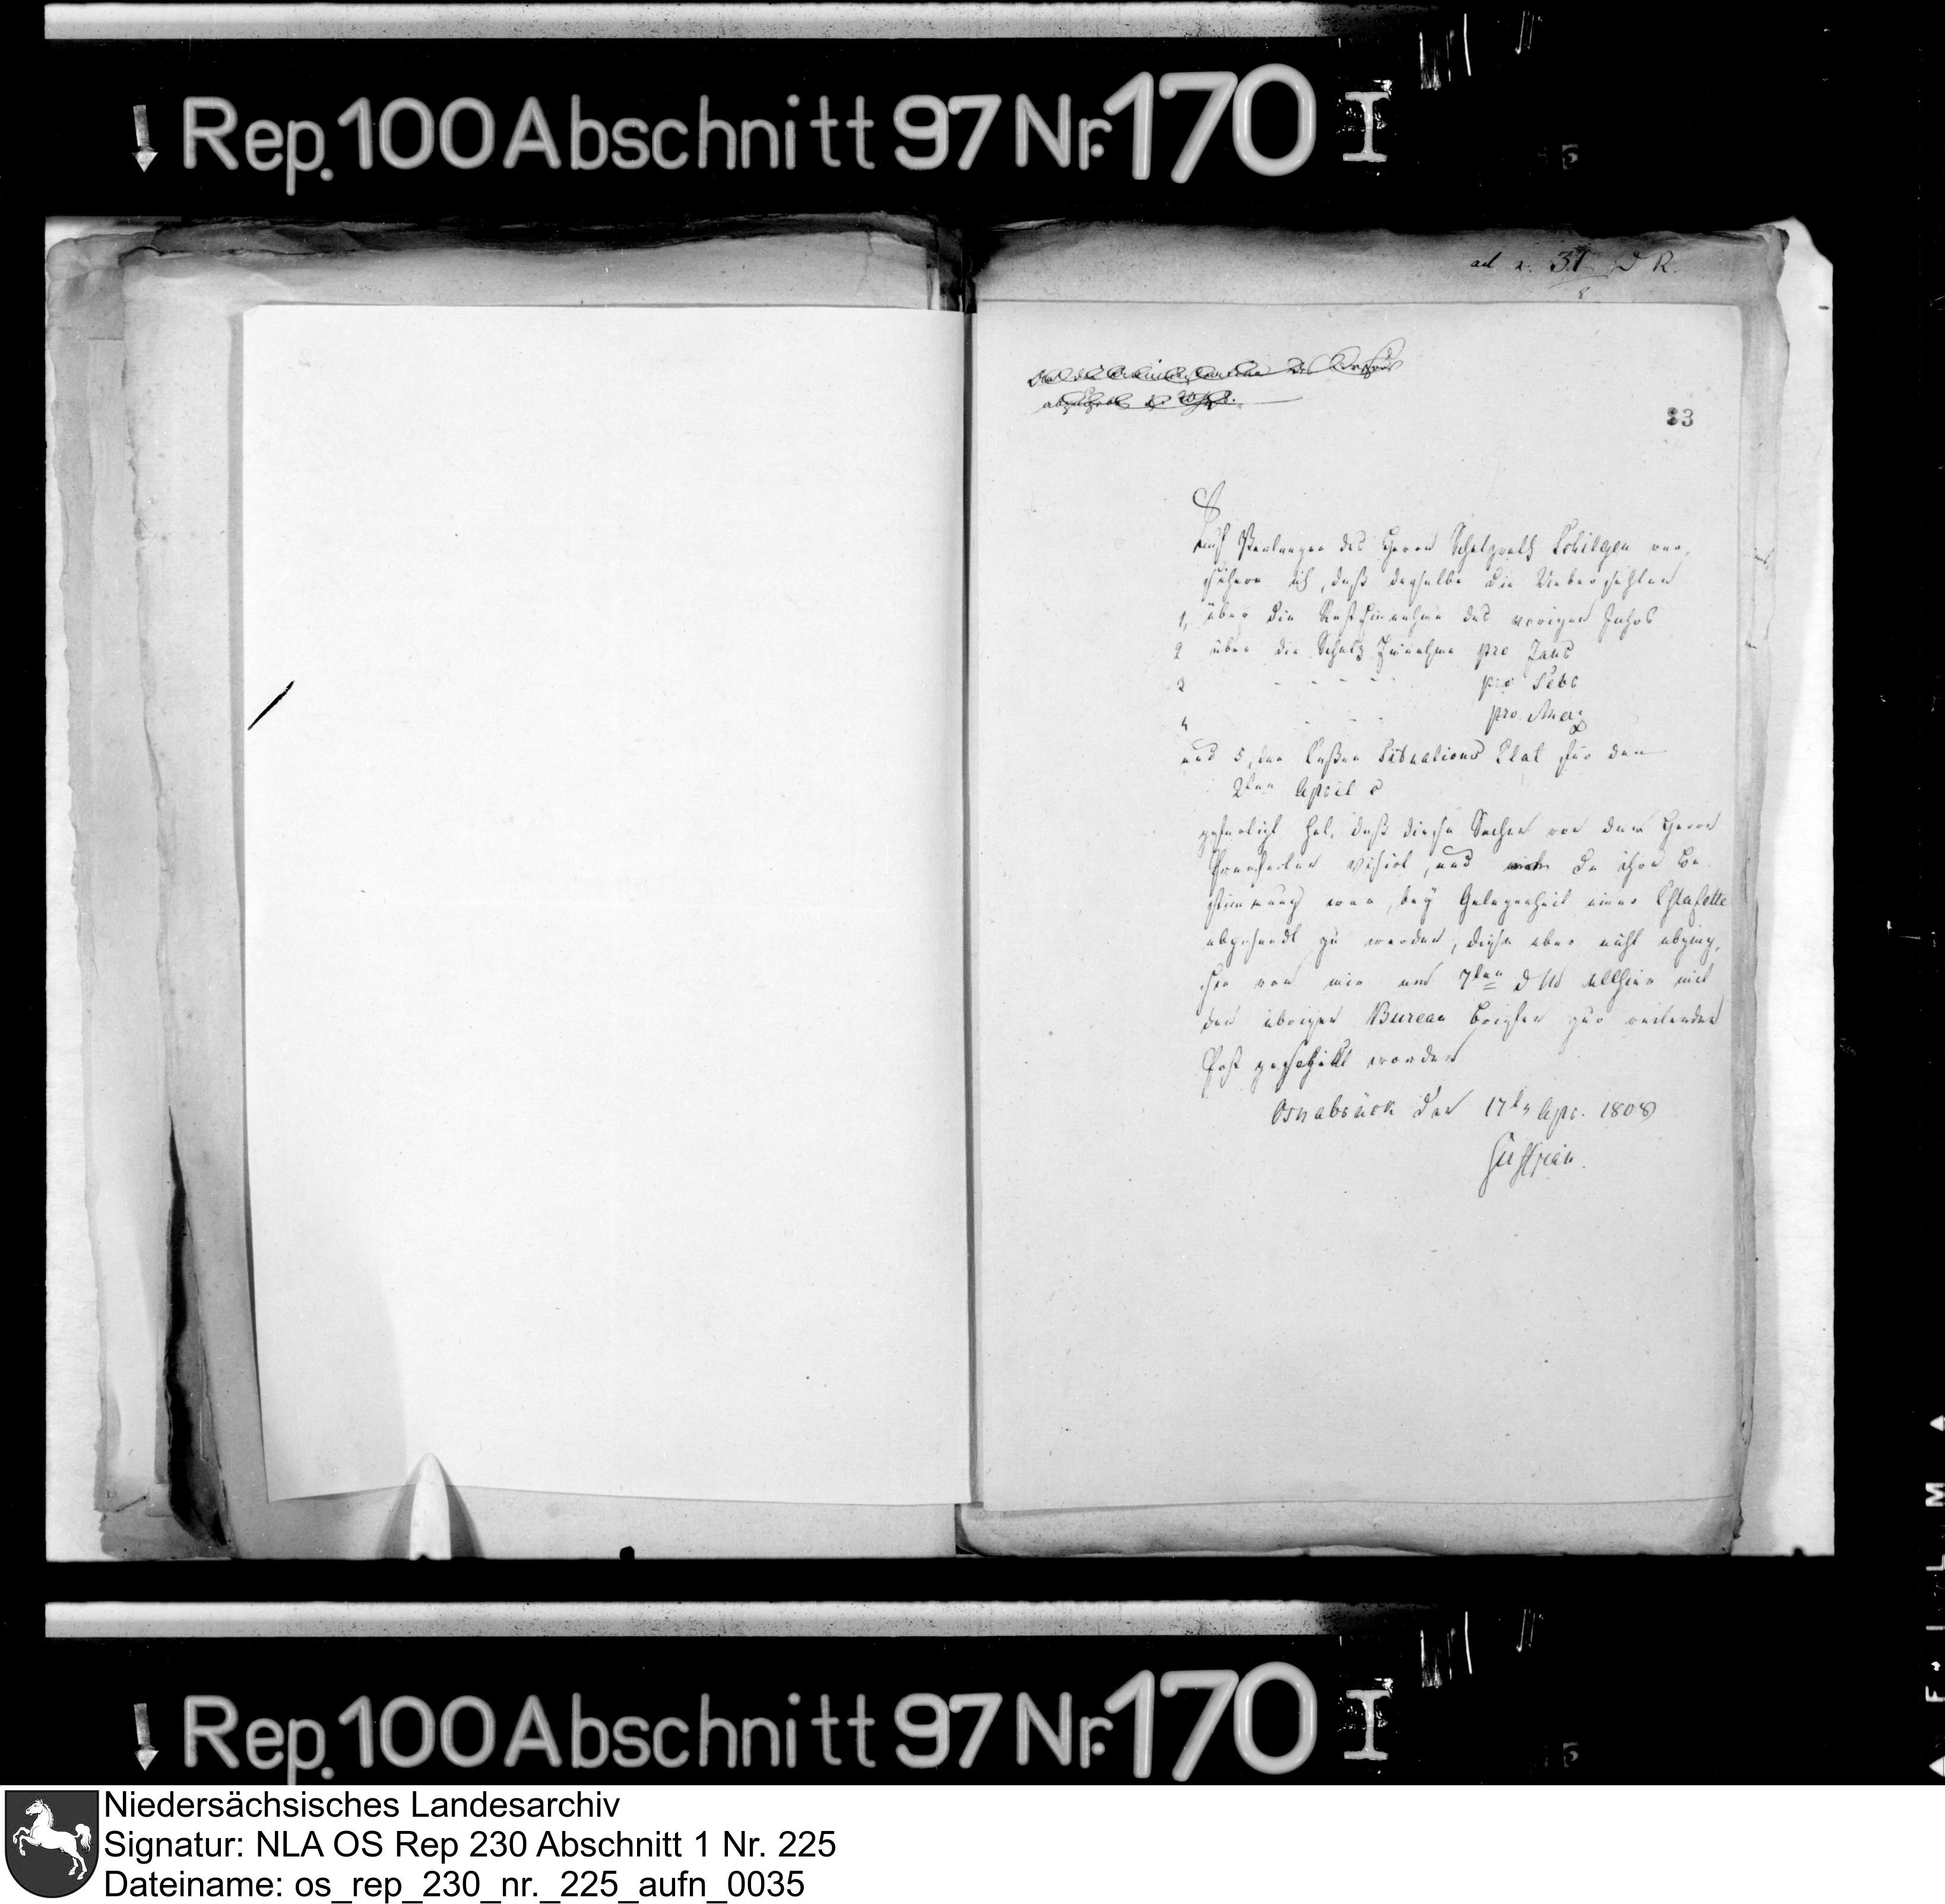 Rep. 100 Abschnitt 97 Nr. 170 I
ad n. 31 D R.
33
Auf Verlangen des Herrn Schatzrath Schilgen ver-
sichere ich, daß derselbe die Uebersichten
1, über die Rest Einnahme des vorigen Jahrs
2 über die Schatz Einnahme pro Janr
3 - - - - - pro Febr
4 - - - pro Merz
und 5, den Cassen Situations Etat für den
2ten April c
gefertigt hat, daß diese Sachen von dem Herrn
visirt, und da ihre Be
stimmung war, bey Gelegenheit einer Estafette
abgesandt zu werden, diese aber nicht abging,
von mir am 7ten d M allhier mit
den übrigen Bureau Briefen zur reitenden
Post geschickt worden
Osnabrück den 17ten Apr. 1808
Rep. 100 Abschnitt 97 Nr. 170 I
FILM
Niedersächsisches Landesarchiv
Signatur: NLA OS Rep 230 Abschnitt 1 Nr. 225
Dateiname: os_rep_230_nr._225_aufn_0035